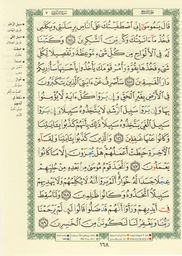 قَالَ يَٰمُوسَىٰٓ إِنِّي ٱصۡطَفَيۡتُكَ عَلَى ٱلنَّاسِ بِرِسَٰلَٰتِي وَبِكَلَٰمِي
فَخُذۡ مَآ ءَاتَيۡتُكَ وَكُن مِّنَ ٱلشَّٰكِرِينَ ١٤٤ وَكَتَبۡنَا
لَهُۥ فِي ٱلۡأَلۡوَاحِ مِن كُلِّ شَيۡءٖ مَّوۡعِظَةٗ وَتَفۡصِيلٗا لِّكُلِّ
شَيۡءٖ فَخُذۡهَا بِقُوَّةٖ وَأۡمُرۡ قَوۡمَكَ يَأۡخُذُواْ بِأَحۡسَنِهَاۚ سَأُوْرِيكُمۡ
دَارَ ٱلۡفَٰسِقِينَ ١٤٥ سَأَصۡرِفُ عَنۡ ءَايَٰتِيَ ٱلَّذِينَ يَتَكَبَّرُونَ
فِي ٱلۡأَرۡضِ بِغَيۡرِ ٱلۡحَقِّ وَإِن يَرَوۡاْ كُلَّ ءَايَةٖ لَّا يُؤۡمِنُواْ بِهَا
وَإِن يَرَوۡاْ سَبِيلَ ٱلرُّشۡدِ لَا يَتَّخِذُوهُ سَبِيلٗا وَإِن يَرَوۡاْ
سَبِيلَ ٱلۡغَيِّ يَتَّخِذُوهُ سَبِيلٗاۚ ذَٰلِكَ بِأَنَّهُمۡ كَذَّبُواْ بِـَٔايَٰتِنَا
وَكَانُواْ عَنۡهَا غَٰفِلِينَ ١٤٦ وَٱلَّذِينَ كَذَّبُواْ بِـَٔايَٰتِنَا وَلِقَآءِ
ٱلۡأٓخِرَةِ حَبِطَتۡ أَعۡمَٰلُهُمۡۚ هَلۡ يُجۡزَوۡنَ إِلَّا مَا كَانُواْ
يَعۡمَلُونَ ١٤٧ وَٱتَّخَذَ قَوۡمُ مُوسَىٰ مِنۢ بَعۡدِهِۦ مِنۡ حُلِيِّهِمۡ
عِجۡلٗا جَسَدٗا لَّهُۥ خُوَارٌۚ أَلَمۡ يَرَوۡاْ أَنَّهُۥ لَا يُكَلِّمُهُمۡ وَلَا يَهۡدِيهِمۡ
سَبِيلًاۘ ٱتَّخَذُوهُ وَكَانُواْ ظَٰلِمِينَ ١٤٨ وَلَمَّا سُقِطَ
فِيٓ أَيۡدِيهِمۡ وَرَأَوۡاْ أَنَّهُمۡ قَدۡ ضَلُّواْ قَالُواْ لَئِن لَّمۡ يَرۡحَمۡنَا
رَبُّنَا وَيَغۡفِرۡ لَنَا لَنَكُونَنَّ مِنَ ٱلۡخَٰسِرِينَ ١٤٩
١٦٨